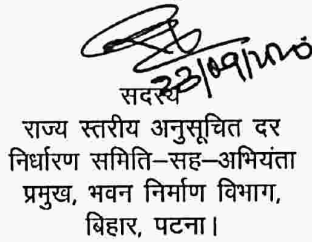 23/09/2020
सदस्य
राज्य स्तरीय अनुसूचित दर
निर्धारण समिति–सह–अभियंता
प्रमुख, भवन निर्माण विभाग,
बिहार, पटना।